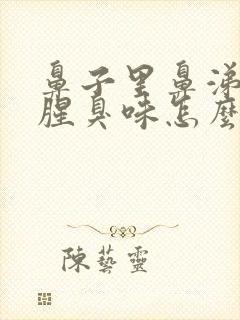 鼻子里鼻涕
腥臭味怎麼
陳藝靈